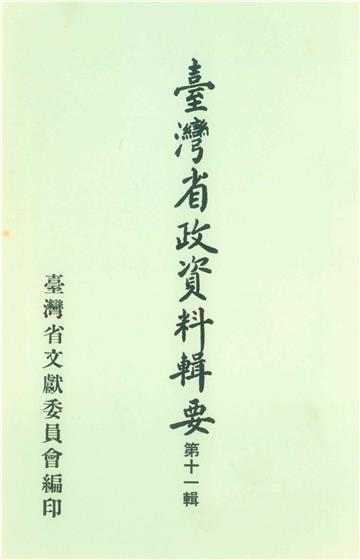 臺灣省政資料輯要
第十一輯
臺灣省文獻委員會編印